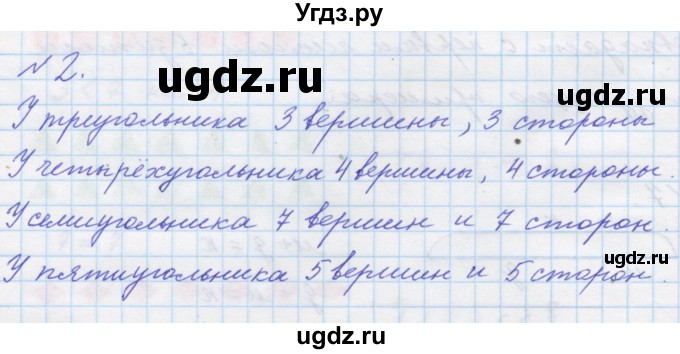 Угдз.ру
№ 2.
ugdz.ru
ugdz.ru
У треугольника 3 вершины, 3 стороны
У четырёхугольника 4 вершины, 4 стороны.
ugdz.ru
У семиугольника 7 вершин и 7 сторон.
У пятиугольника 5 вершин и 5 сторон.
ugdz.ru
ugdz.ru